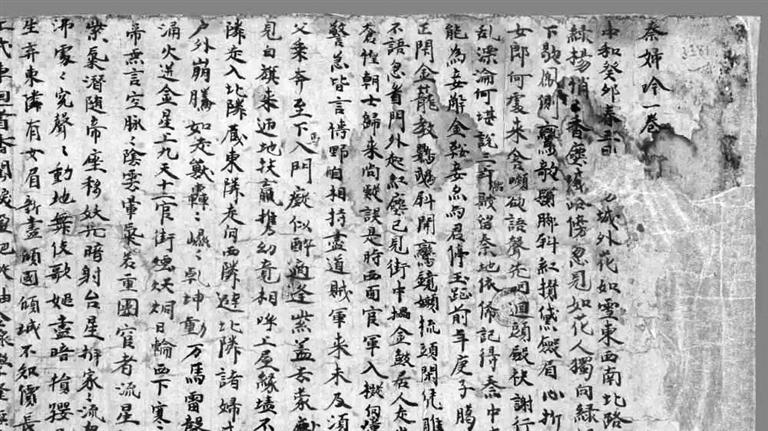 秦婦吟一卷
中和癸卯春三月城外花如雪東西南北路
綠揚悄〻香塵滅路傍忽見如花人獨向綠
下歇鳳側鸞欹鬢脚斜紅攢黛斂眉心折
女郎何處來含嚬欲語聲先咽迴頭斂袂謝行
乱漂淪何堪說三年陷賊留秦地依俙記得秦中
能為妾解金鞍妾亦為君停玉趾前年庚子臈
正閇金蘢教鸚鵡斜開鸞鏡嬾梳頭閑凭雕
不語忽看門外起紅塵已見街中擂金鼓居人走出
倉惶朝士歸來尚疑誤是時西面官軍入擬向潼
警急皆言博野自相持盡道賊軍來未及湏
父乘奔至下馬入門癡似醉適逢紫蓋去蒙塵
見白旗來迊地扶羸攜幼競相呼上屋緣墻不
隣走入北隣藏東隣走向西隣避北隣諸婦
戶外崩騰如走獸轟〻崐〻乾坤動万馬雷聲
涌火迸金星上九天十二官街煙烘烔日輪西下寒
帝無言空脉〻陰雲暈氣若重圍宦者流星
紫氣潛隨帝座移妖光暗射台星拆家〻流血
沸處〻冤聲〻動地舞伎歌姬盡暗損嬰
生弃東隣有女眉新畫傾國傾城不知價長
戎車迴首香閨淚盈把抽金線學縫旗